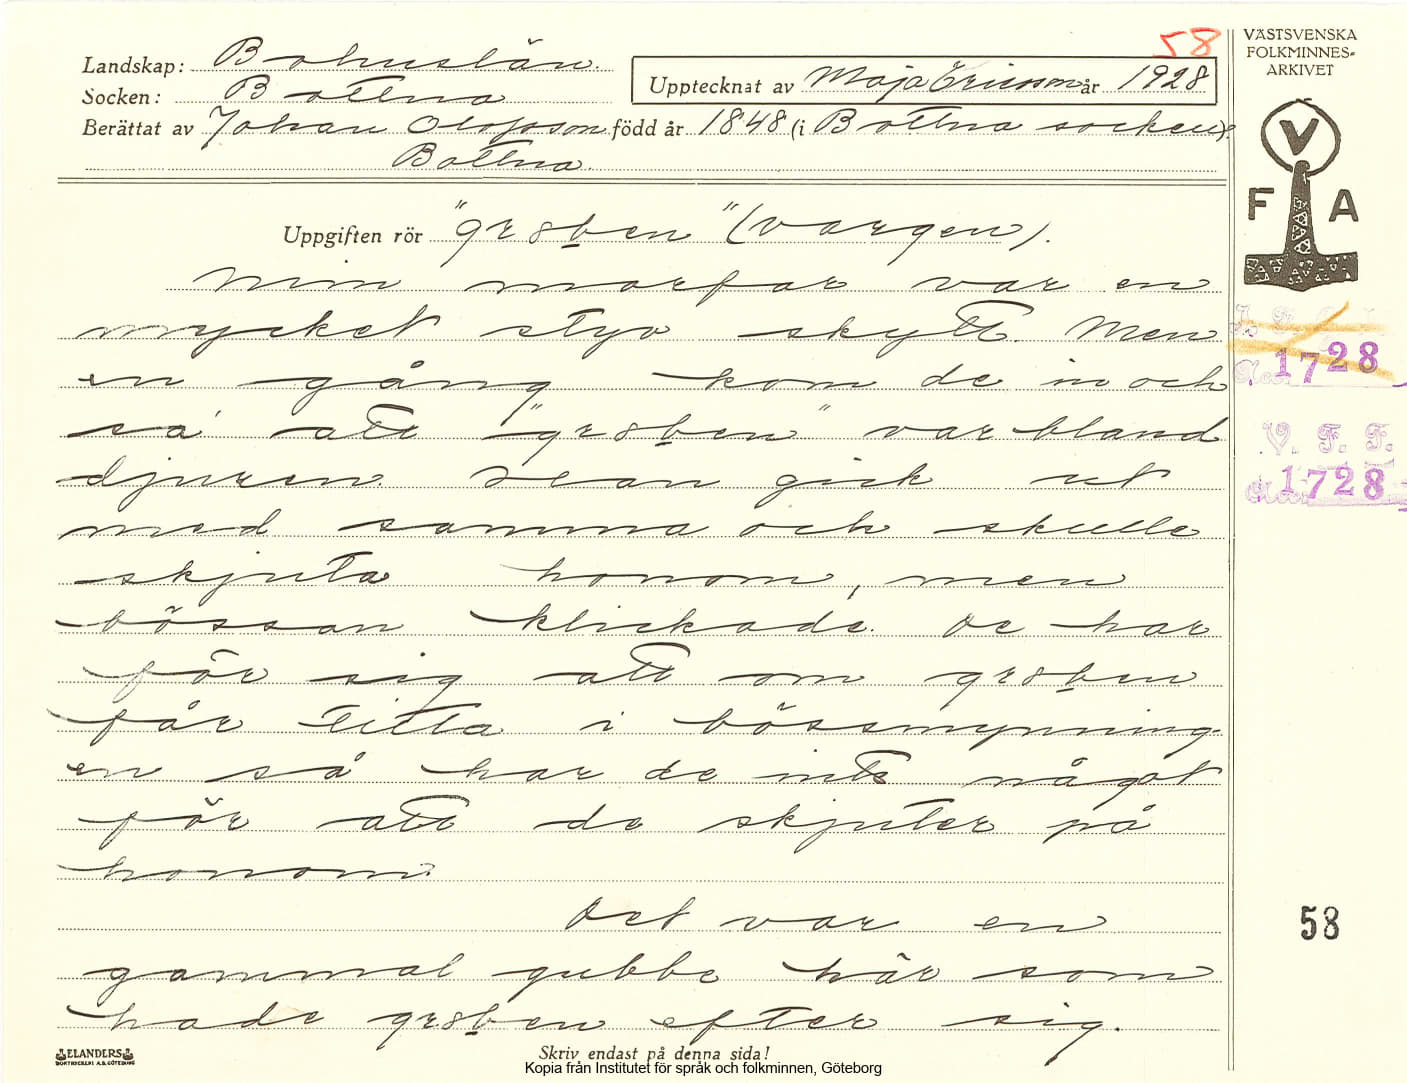 58
VÄSTSVENSKA
FOLKMINNES-
ARKIVET
Landskap: Bohuslän.
Socken: Bottna
Upptecknat av Maja Ericson år 1928
Berättat av Johan Olofsson född år 1848 (i Bottna socken).
Bottna.
V
F A
Uppgiften rör "gr8ben" (vargen).
Min morfar var en
mycket styv skytt. Men
en gång kom de in och
sa' att "gr8ben" var bland
djuren. Han gick ut
med samma och skulle
skjuta honom, men
bössan klickade. De har
för sig att om gr8ben
får titta i bössmynning-
en så har de inte något
för att de skjuter på
honom.
Det var en
gammal gubbe här som
hade gr8ben efter sig.
1728
V. F. F.
1728
58
ELANDERS
BOKTRYCKERI A.B. GÖTEBORG
Skriv endast på denna sida!
Kopia från Institutet för språk och folkminnen, Göteborg